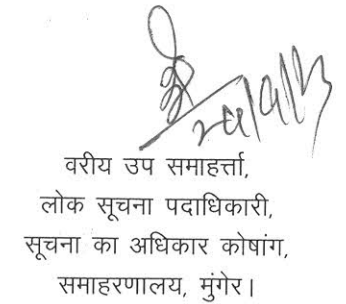 वरीय उप समाहर्त्ता,
लोक सूचना पदाधिकारी,
सूचना का अधिकार कोषांग,
समाहरणालय, मुंगेर।